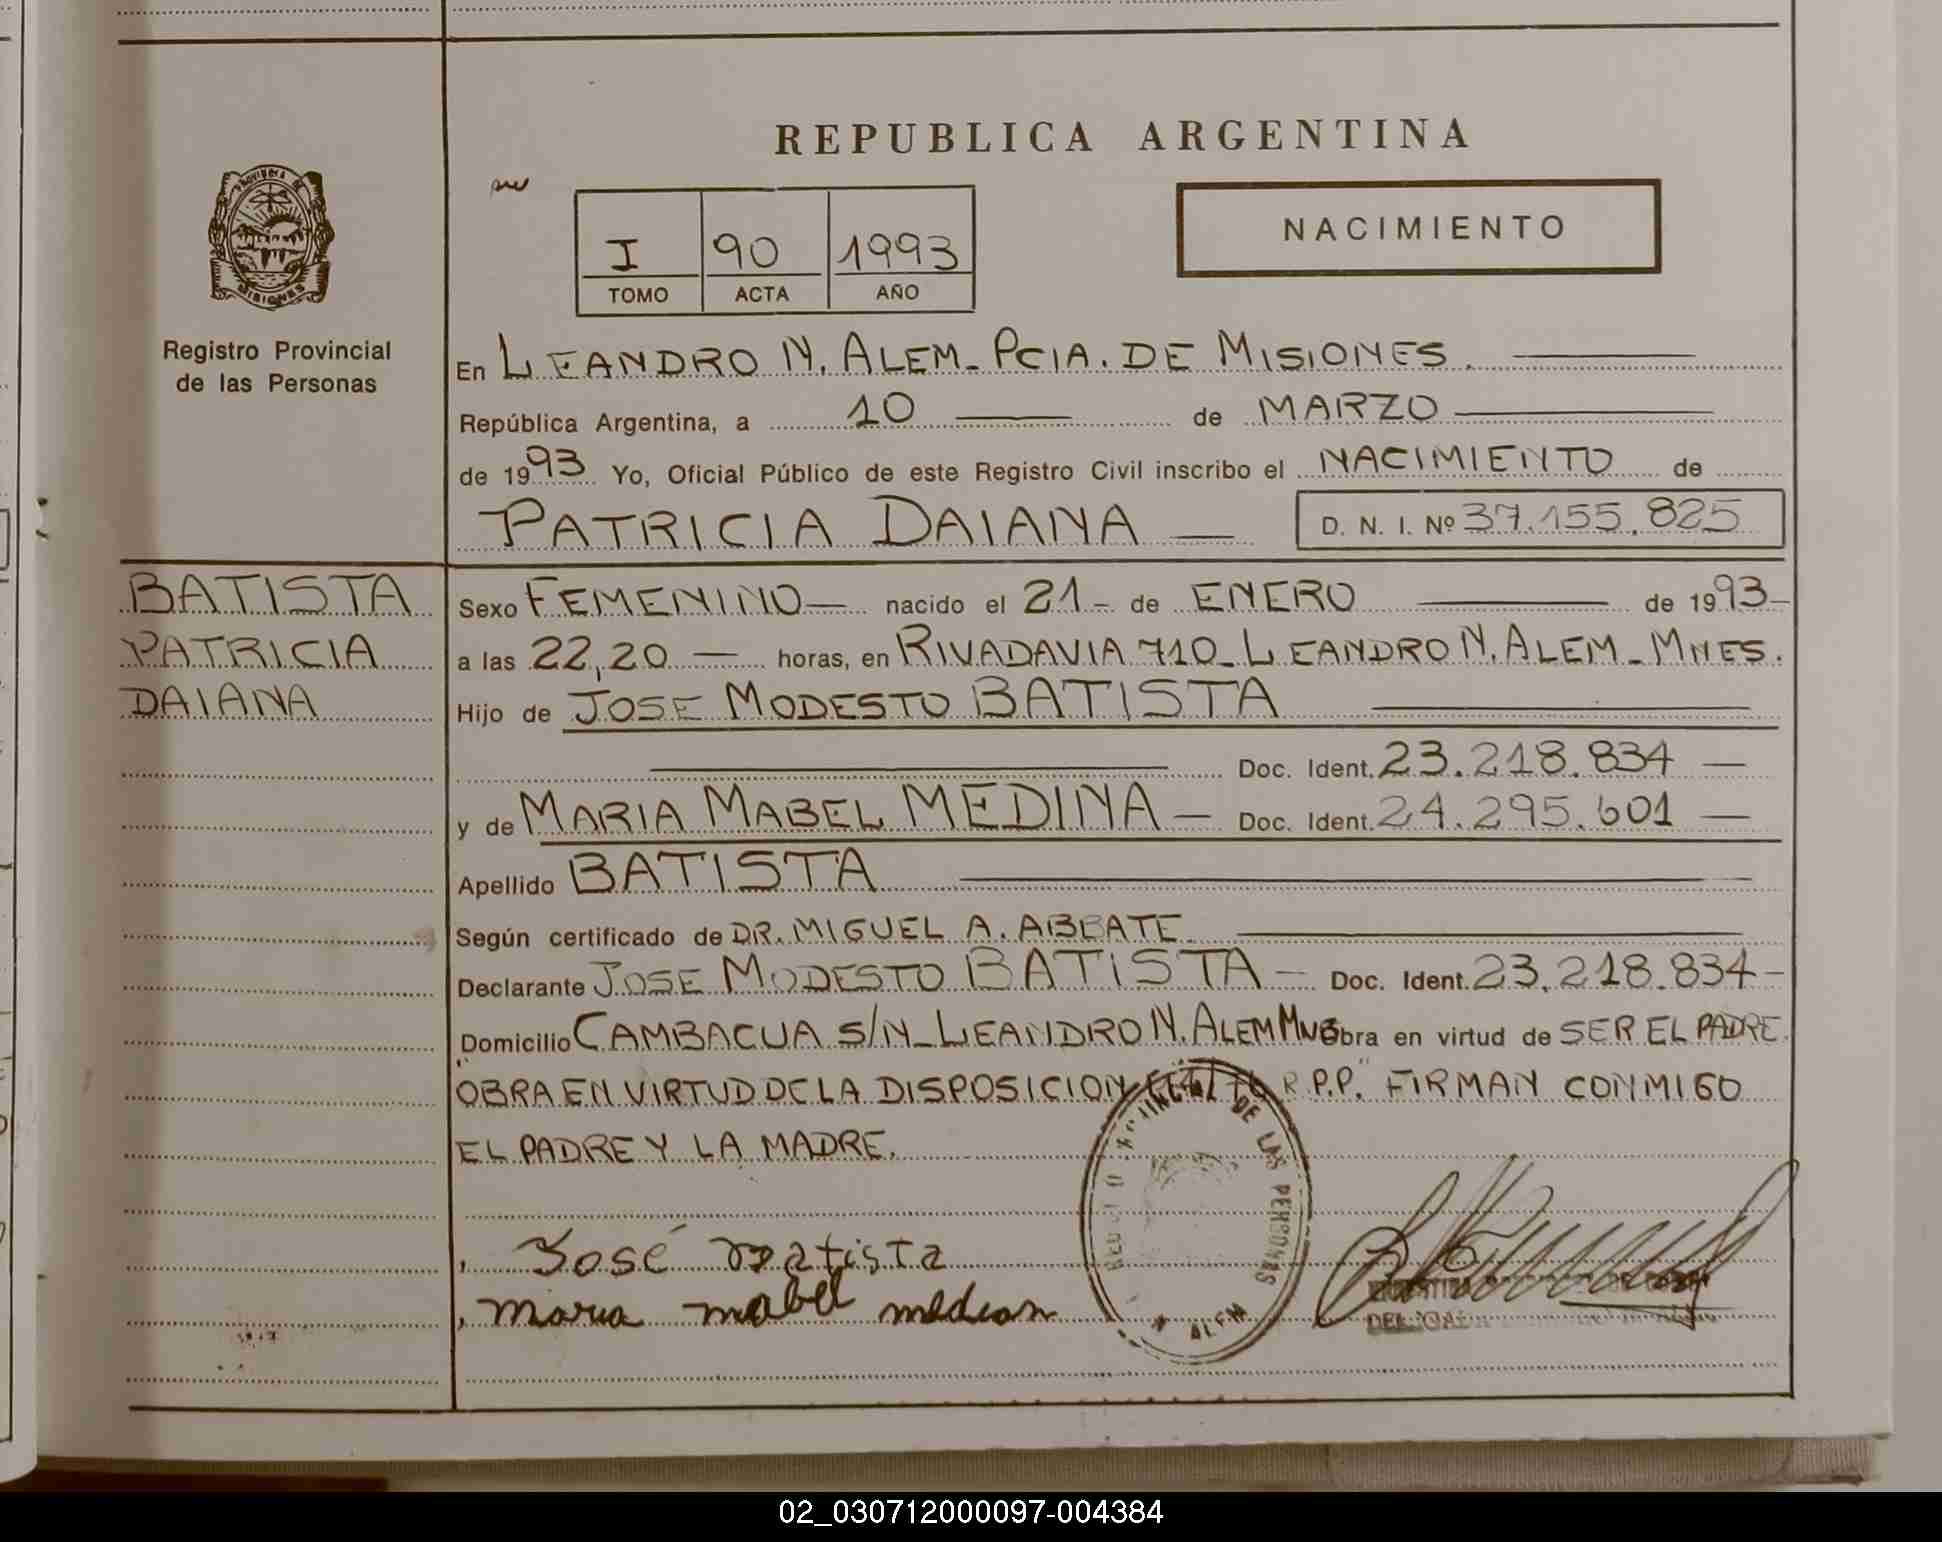 REPUBLICA ARGENTINA
PROVINCIA DE
MISIONES
I 90 1993
TOMO ACTA AÑO
NACIMIENTO
Registro Provincial
de las Personas
En LEANDRO N. ALEM - PCIA. DE MISIONES.
República Argentina, a 10 de MARZO
de 1993 Yo, Oficial Público de este Registro Civil inscribo el NACIMIENTO de
PATRICIA DAIANA — D. N. I. Nº 37.155.825
BATISTA
PATRICIA
DAIANA
Sexo FEMENINO — nacido el 21 - de ENERO — de 1993 -
a las 22,20 — horas, en RIVADAVIA 710 - LEANDRO N. ALEM - MNES.
Hijo de JOSE MODESTO BATISTA
Doc. Ident. 23.218.834 —
y de MARIA MABEL MEDINA — Doc. Ident. 24.295.601 —
Apellido BATISTA
Según certificado de DR. MIGUEL A. ABBATE
Declarante JOSE MODESTO BATISTA — Doc. Ident. 23.218.834 -
Domicilio CAMBACUA S/N - LEANDRO N. ALEM Obra en virtud de SER EL PADRE.
"OBRA EN VIRTUD DE LA DISPOSICION R.P.P." FIRMAN CONMIGO
EL PADRE Y LA MADRE.
DE LAS PERSONAS
ALEM
José Batista
maria mabel
02_030712000097-004384